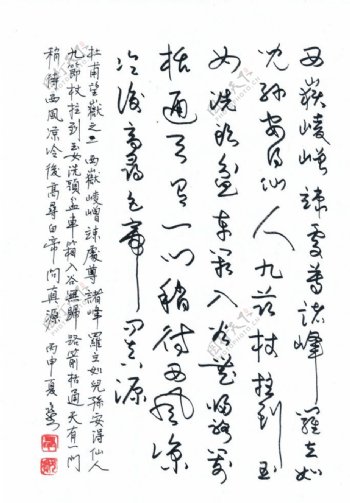 西嶽崚嶒竦處尊諸峰羅立如
兒孫安得仙人九節杖拄到玉
女洗頭盆車箱入谷無歸路箭
栝通天有一門稍待西風涼
冷後高尋白帝問真源
杜甫望嶽之二 西嶽崚嶒竦處尊 諸峰羅立如兒孫安得仙人
九節杖拄到玉女洗頭盆車箱入谷無歸路箭栝通天有一門
稍待西風涼冷後高尋白帝問真源 丙申夏